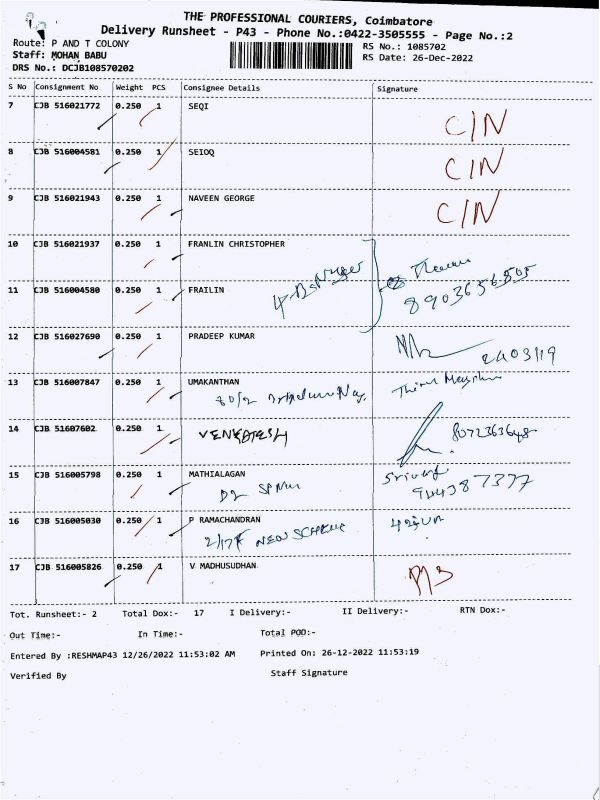 THE PROFESSIONAL COURIERS, Coimbatore
Delivery Runsheet - P43 - Phone No.:0422-3505555 - Page No.:2
Route: P AND T COLONY RS No.: 1085702
Staff: MOHAN BABU RS Date: 26-Dec-2022
DRS No.: DCJB108570202
S No Consignment No Weight PCS Consignee Details Signature
7 CJB 516021772 0.250 1 SEQI C/N
8 CJB 516004581 0.250 1 SEIOQ C/N
9 CJB 516021943 0.250 1 NAVEEN GEORGE C/N
10 CJB 516021937 0.250 1 FRANLIN CHRISTOPHER
11 CJB 516004580 0.250 1 FRAILIN
12 CJB 516027690 0.250 1 PRADEEP KUMAR
13 CJB 516007847 0.250 1 UMAKANTHAN
80/2
14 CJB 51607602 0.250 1 VENKATESH 8072363648
15 CJB 516005798 0.250 1 MATHIALAGAN
16 CJB 516005030 0.250 1 P RAMACHANDRAN
NEW SCHEME
17 CJB 516005826 0.250 1 V MADHUSUDHAN
Tot. Runsheet:- 2 Total Dox:- 17 I Delivery:- II Delivery:- RTN Dox:-
Out Time:- In Time:- Total POD:-
Entered By :RESHMAP43 12/26/2022 11:53:02 AM Printed On: 26-12-2022 11:53:19
Verified By Staff Signature